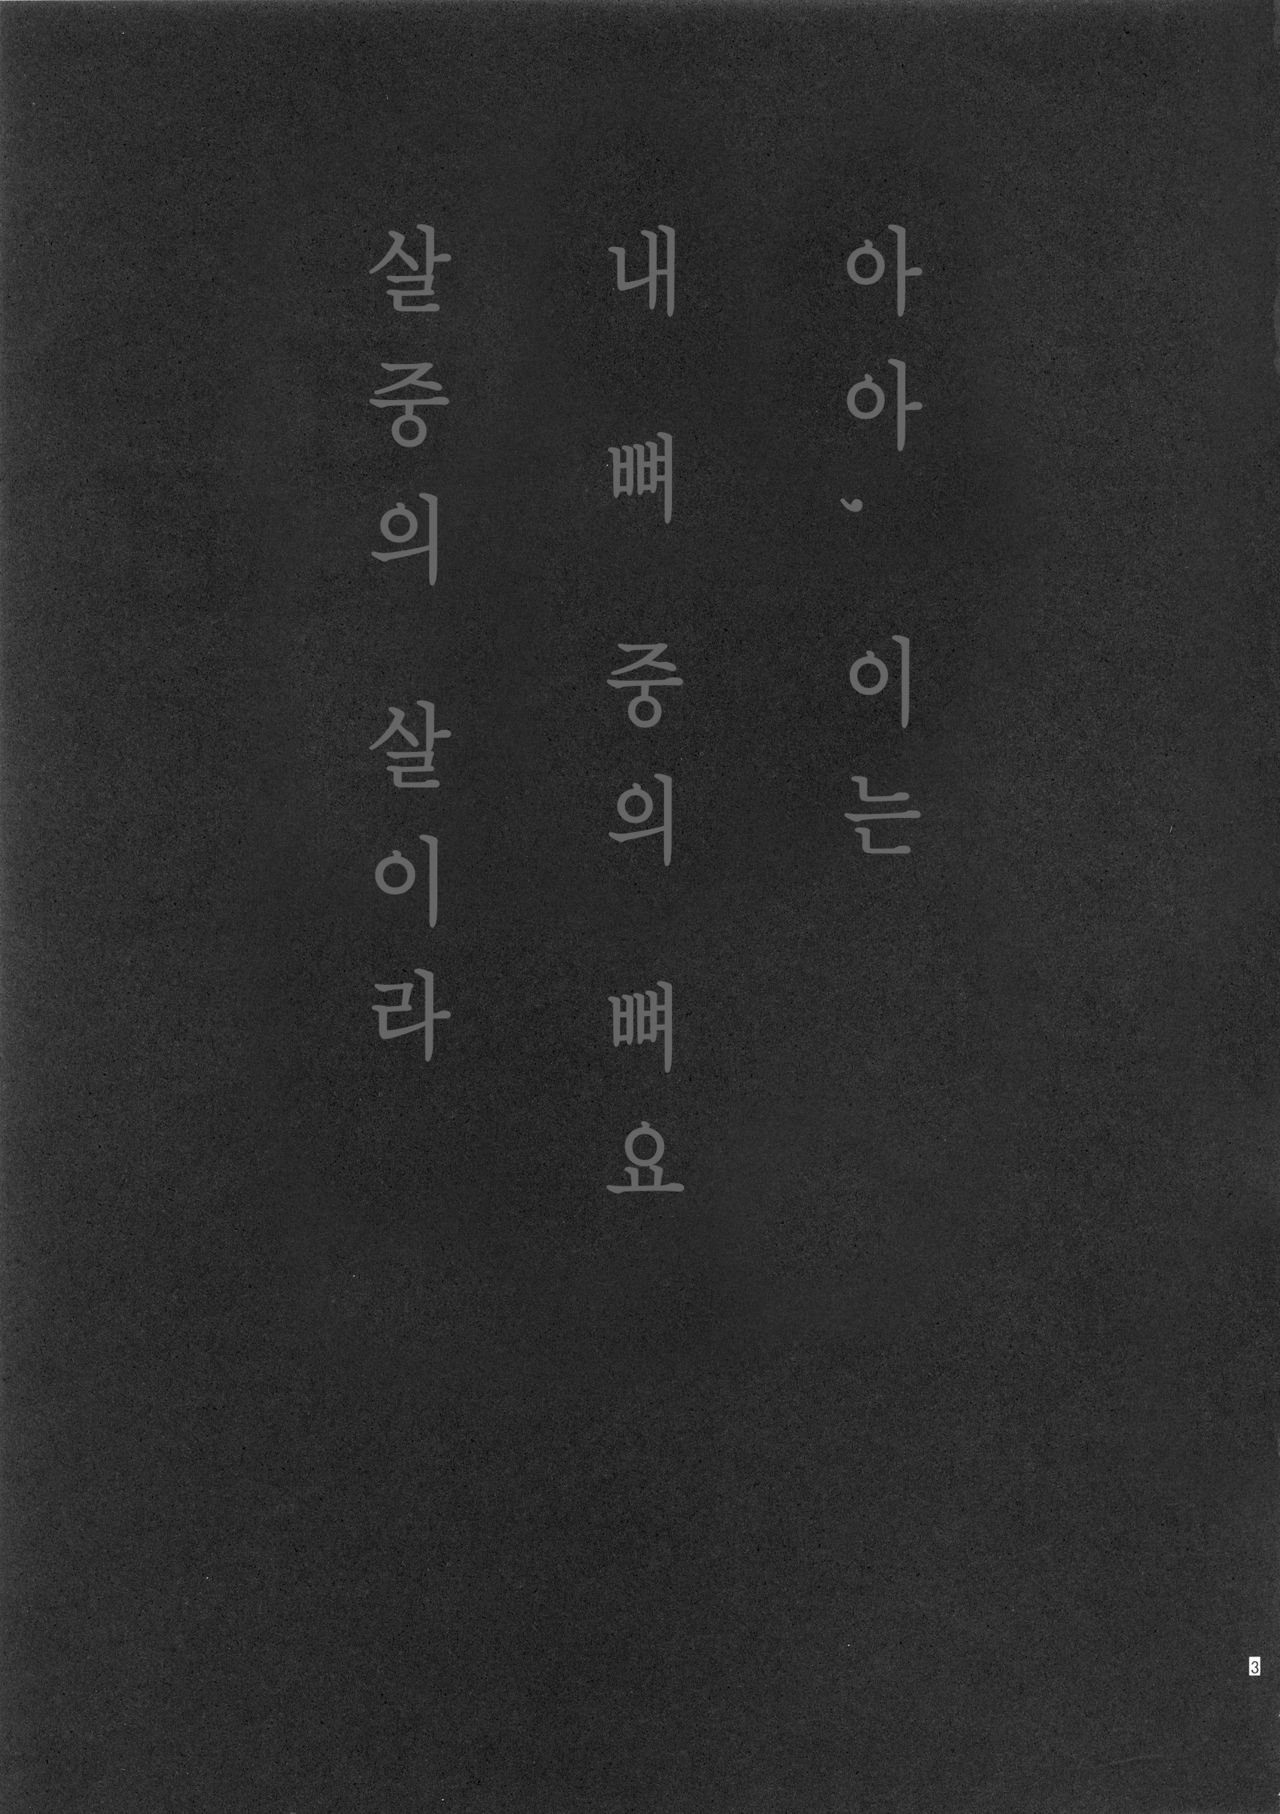 아아, 이는
내 뼈 중의 뼈요
살중의 살이라
3